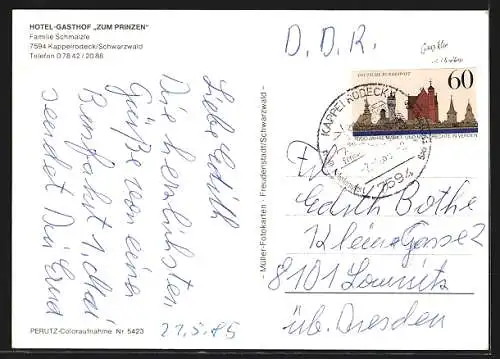 HOTEL-GASTHOF „ZUM PRINZEN"
Familie Schmälzle
7594 Kappelrodeck/Schwarzwald
Telefon 0 78 42 / 20 88
Liebe Edith
Die herzlichsten
Grüße von einer
Busfahrt 1. Mai
sendet Dir
21.5.85
PERUTZ-Coloraufnahme Nr 5423
— Müller-Fotokarten · Freudenstadt/Schwarzwald —
D. D. R.
DEUTSCHE BUNDESPOST
60
1000 JAHRE MARKT- UND MÜNZRECHTE IN VERDEN
KAPPELRODECK
7594
Edith Bothe
Kleine Gasse 2
8101
üb. Dresden